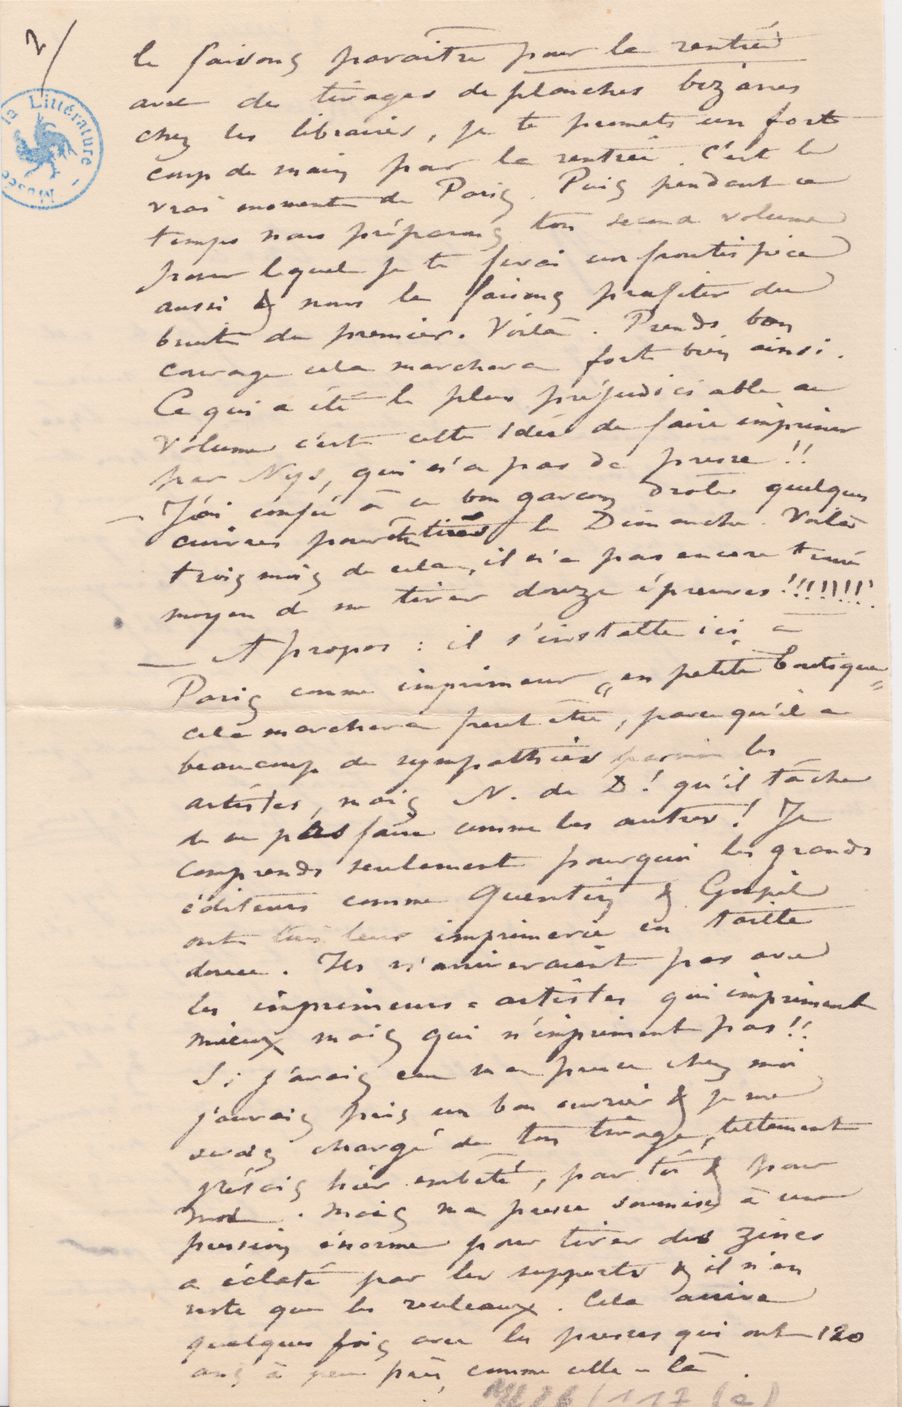 2/
la Littérature - Musée
le faisons paraître pour la rentrée
avec des tirages de planches bizarres
chez les libraires, je te promets un fort
coup de main pour la rentrée. C'est le
vrai moment de Paris. Puis pendant ce
temps nous préparons ton second volume
pour lequel je te ferai un frontispice
aussi & nous le faisons profiter du
bruit du premier. Voilà. Prends bon
courage cela marchera fort bien ainsi.
Ce qui a été le plus préjudiciable au
volume c'est cette idée de faire imprimer
par Nys, qui n'a pas de presse !!
— J'ai confié à ce bon garçon drôle quelques
cuivres pour tirer le Dimanche. Voilà
trois mois de cela, il n'a pas encore trouvé
moyen de me tirer douze épreuves !!!!!!!!
— A propos : il s'installe ici à
Paris comme imprimeur „ en petite boutique "
cela marchera peut être, parce qu'il a
beaucoup de sympathies parmi les
artistes, mais N. de D ! qu'il tâche
de ne pas faire comme les autres ! Je
comprends seulement pourquoi les grands
éditeurs comme Quentin & Goupil
ont leur imprimerie en taille
douce. Ils n'arriveraient pas avec
les imprimeurs = artistes qui impriment
mieux mais qui n'impriment pas !!
Si j'avais eu ma presse chez moi
j'aurais pris un bon ouvrier & je me
serais chargé de ton tirage, tellement
j'étais hier embêté, pour toi & pour
moi. Mais ma presse soumise à une
pression énorme pour tirer des zincs
a éclaté par les supports & il n'en
reste que les rouleaux. Cela arrive
quelques fois avec les presses qui ont 120
ans à peu près, comme celle-là.
/117 (2)